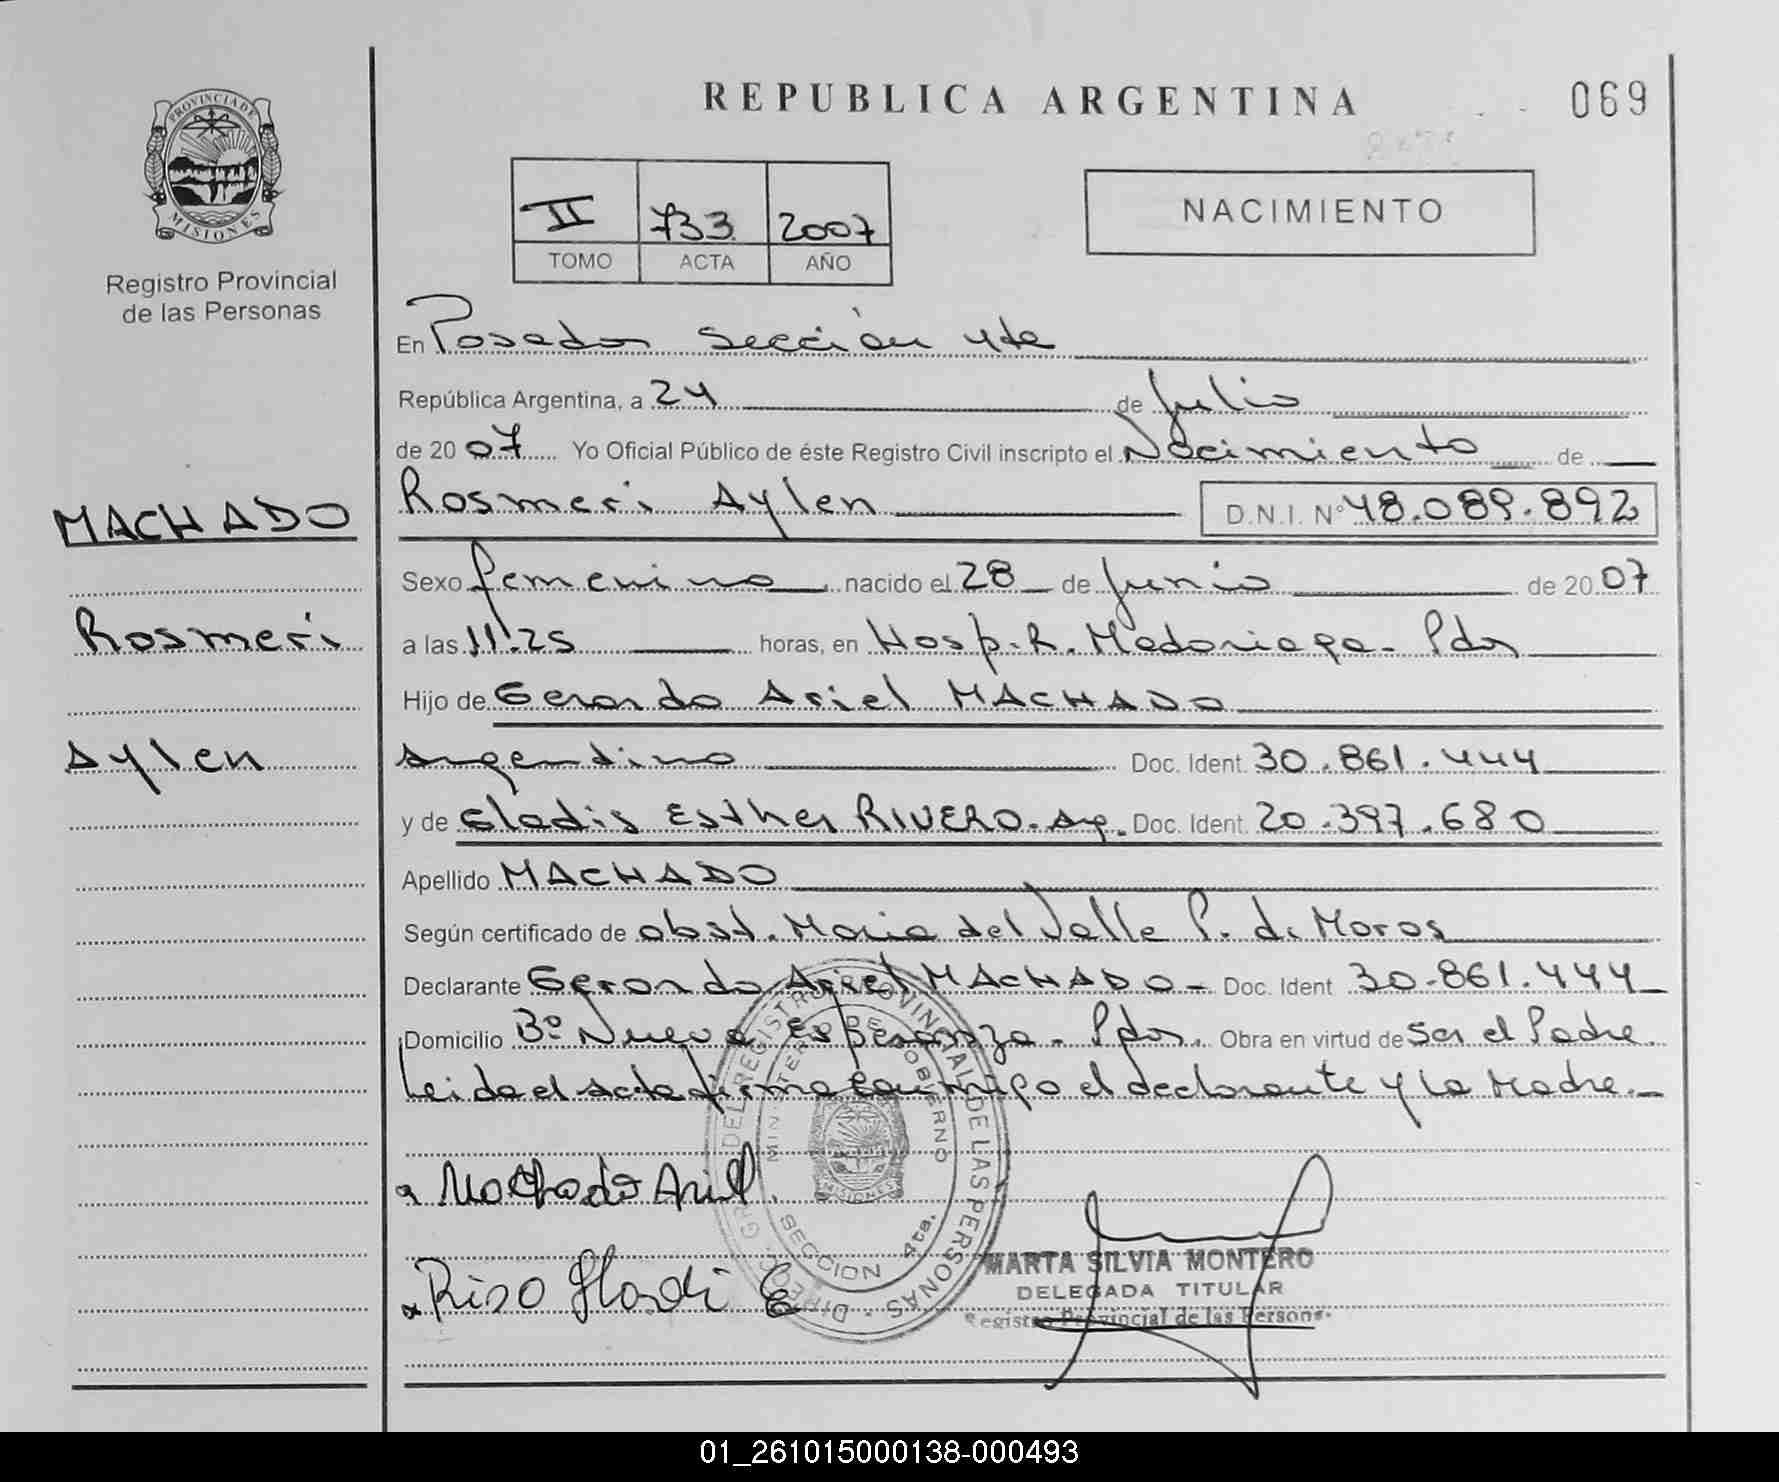 REPUBLICA ARGENTINA
069
PROVINCIA DE
MISIONES
Registro Provincial
de las Personas
II 733 2007
TOMO ACTA AÑO
NACIMIENTO
En Posadas Sección 4ta
República Argentina, a 24 de Julio
de 2007 Yo Oficial Público de éste Registro Civil inscripto el Nacimiento de
MACHADO
Rosmeri Aylen D.N.I. Nº 48.089.892
Sexo femenino nacido el 28 de Junio de 2007
Rosmeri
a las 11:25 horas, en Hosp. R. Madariaga - Pdas
Hijo de Gerardo Ariel MACHADO
Aylen
Argentino Doc. Ident. 30.861.444
y de Gladis Esther RIVERO. Arg. Doc. Ident. 20.397.680
Apellido MACHADO
Según certificado de obst. Maria del Valle P. de Moros
Declarante Gerardo Ariel MACHADO - Doc. Ident 30.861.444
Domicilio Bº Nueva Esperanza - Pdas. Obra en virtud de ser el Padre.
Leida el acta firma conmigo el declarante y la Madre.
Machado Ariel
DIRECC. GRAL. DEL REGISTRO PROVINCIAL DE LAS PERSONAS
MINISTERIO DE GOBIERNO
MISIONES
SECCION 4ta.
MARTA SILVIA MONTERO
DELEGADA TITULAR
Registro Provincial de las Personas
01_261015000138-000493